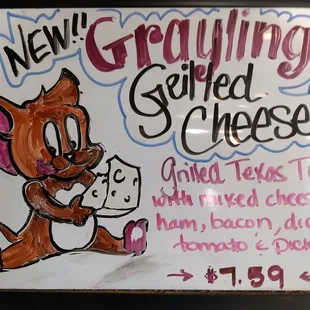 NEW!! Grayling
Grilled
Cheese
Grilled Texas T
with mixed chees
ham, bacon, dic
tomato & Dich
→ $7.59 ←